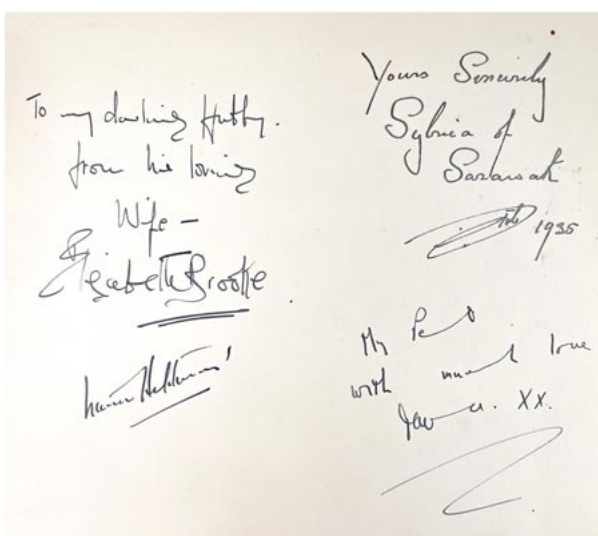 To my darling Hubby.
from his loving
Wife –
Elizabeth Brooke
Yours Sincerely
Sylvia of
Sarawak
1935
My Pet
with much love
XX.